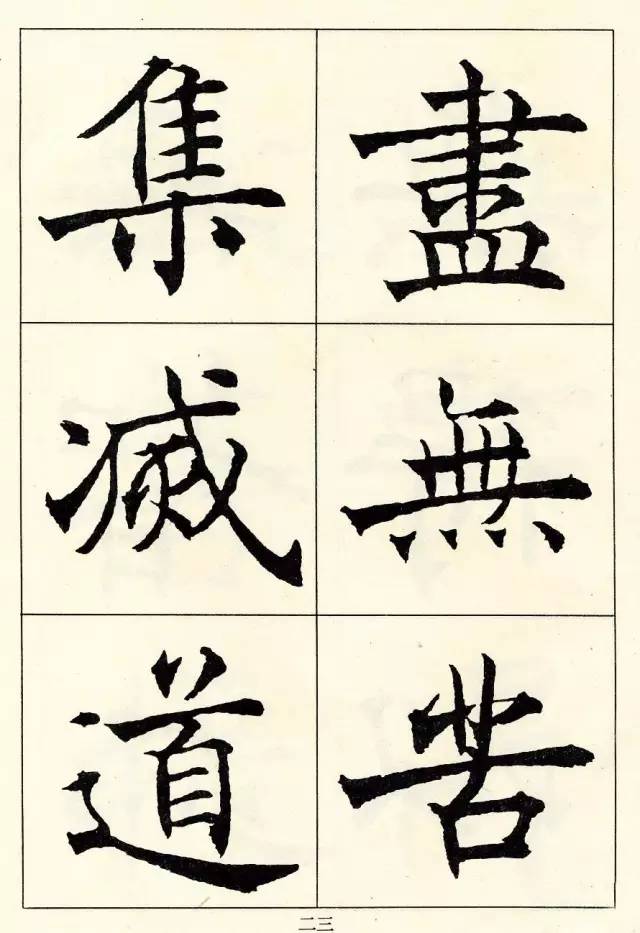 盡無苦
集滅道
二三